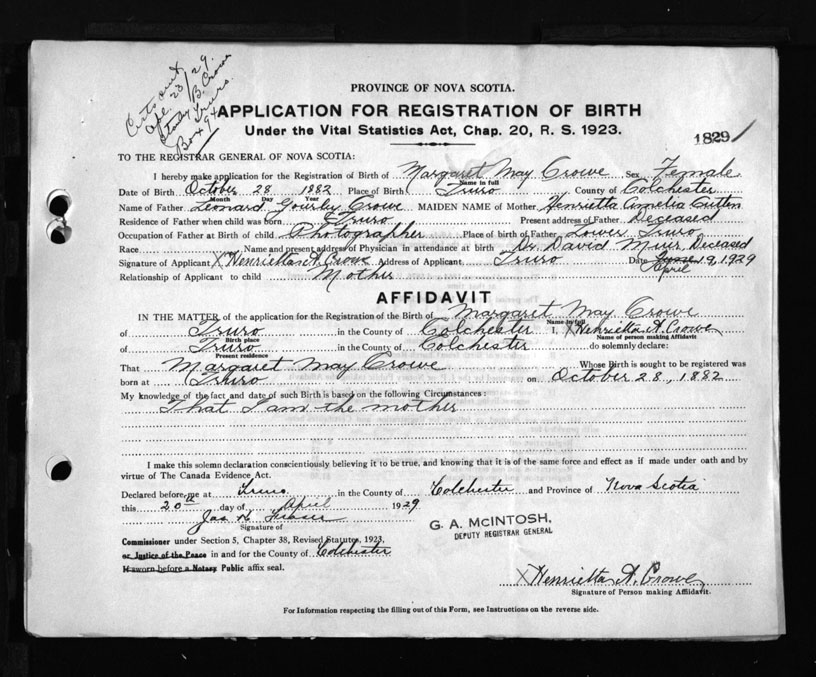 Certs out
Apl. 23/29.
Stanley B. Crowe
Truro.
Box 94
PROVINCE OF NOVA SCOTIA.
APPLICATION FOR REGISTRATION OF BIRTH
Under the Vital Statistics Act, Chap. 20, R. S. 1923.
1829
TO THE REGISTRAR GENERAL OF NOVA SCOTIA:
I hereby make application for the Registration of Birth of Margaret May Crowe Sex Female
Name in full
Date of Birth October 28 1882 Place of Birth Truro County of Colchester
Month Day Year
Name of Father Leonard Gourley Crowe MAIDEN NAME of Mother Henrietta Amelia Cutten
Residence of Father when child was born Truro Present address of Father Deceased
Occupation of Father at Birth of child Photographer Place of birth of Father Lower Truro
Race Name and present address of Physician in attendance at birth Dr. David Muir, Deceased
Signature of Applicant X Henrietta A. Crowe Address of Applicant Truro Date 19, 1929
April
Relationship of Applicant to child Mother
AFFIDAVIT
IN THE MATTER of the application for the Registration of the Birth of Margaret May Crowe
Name in full
of Truro in the County of Colchester I, X Henrietta A. Crowe
Birth place Name of person making Affidavit
of Truro in the County of Colchester do solemnly declare:
Present residence
That Margaret May Crowe Whose Birth is sought to be registered was
born at Truro on October 28, 1882
My knowledge of the fact and date of such Birth is based on the following Circumstances:
That I am the mother
I make this solemn declaration conscientiously believing it to be true, and knowing that it is of the same force and effect as if made under oath and by
virtue of The Canada Evidence Act.
Declared before me at Truro in the County of Colchester and Province of Nova Scotia
this 20th day of April 1929
Jas
Signature of
G. A. McINTOSH,
DEPUTY REGISTRAR GENERAL
Commissioner under Section 5, Chapter 38, Revised Statutes, 1923,
or Justice of the Peace in and for the County of Colchester
If sworn before a Notary Public affix seal.
X Henrietta A. Crowe
Signature of Person making Affidavit.
For Information respecting the filling out of this Form, see Instructions on the reverse side.